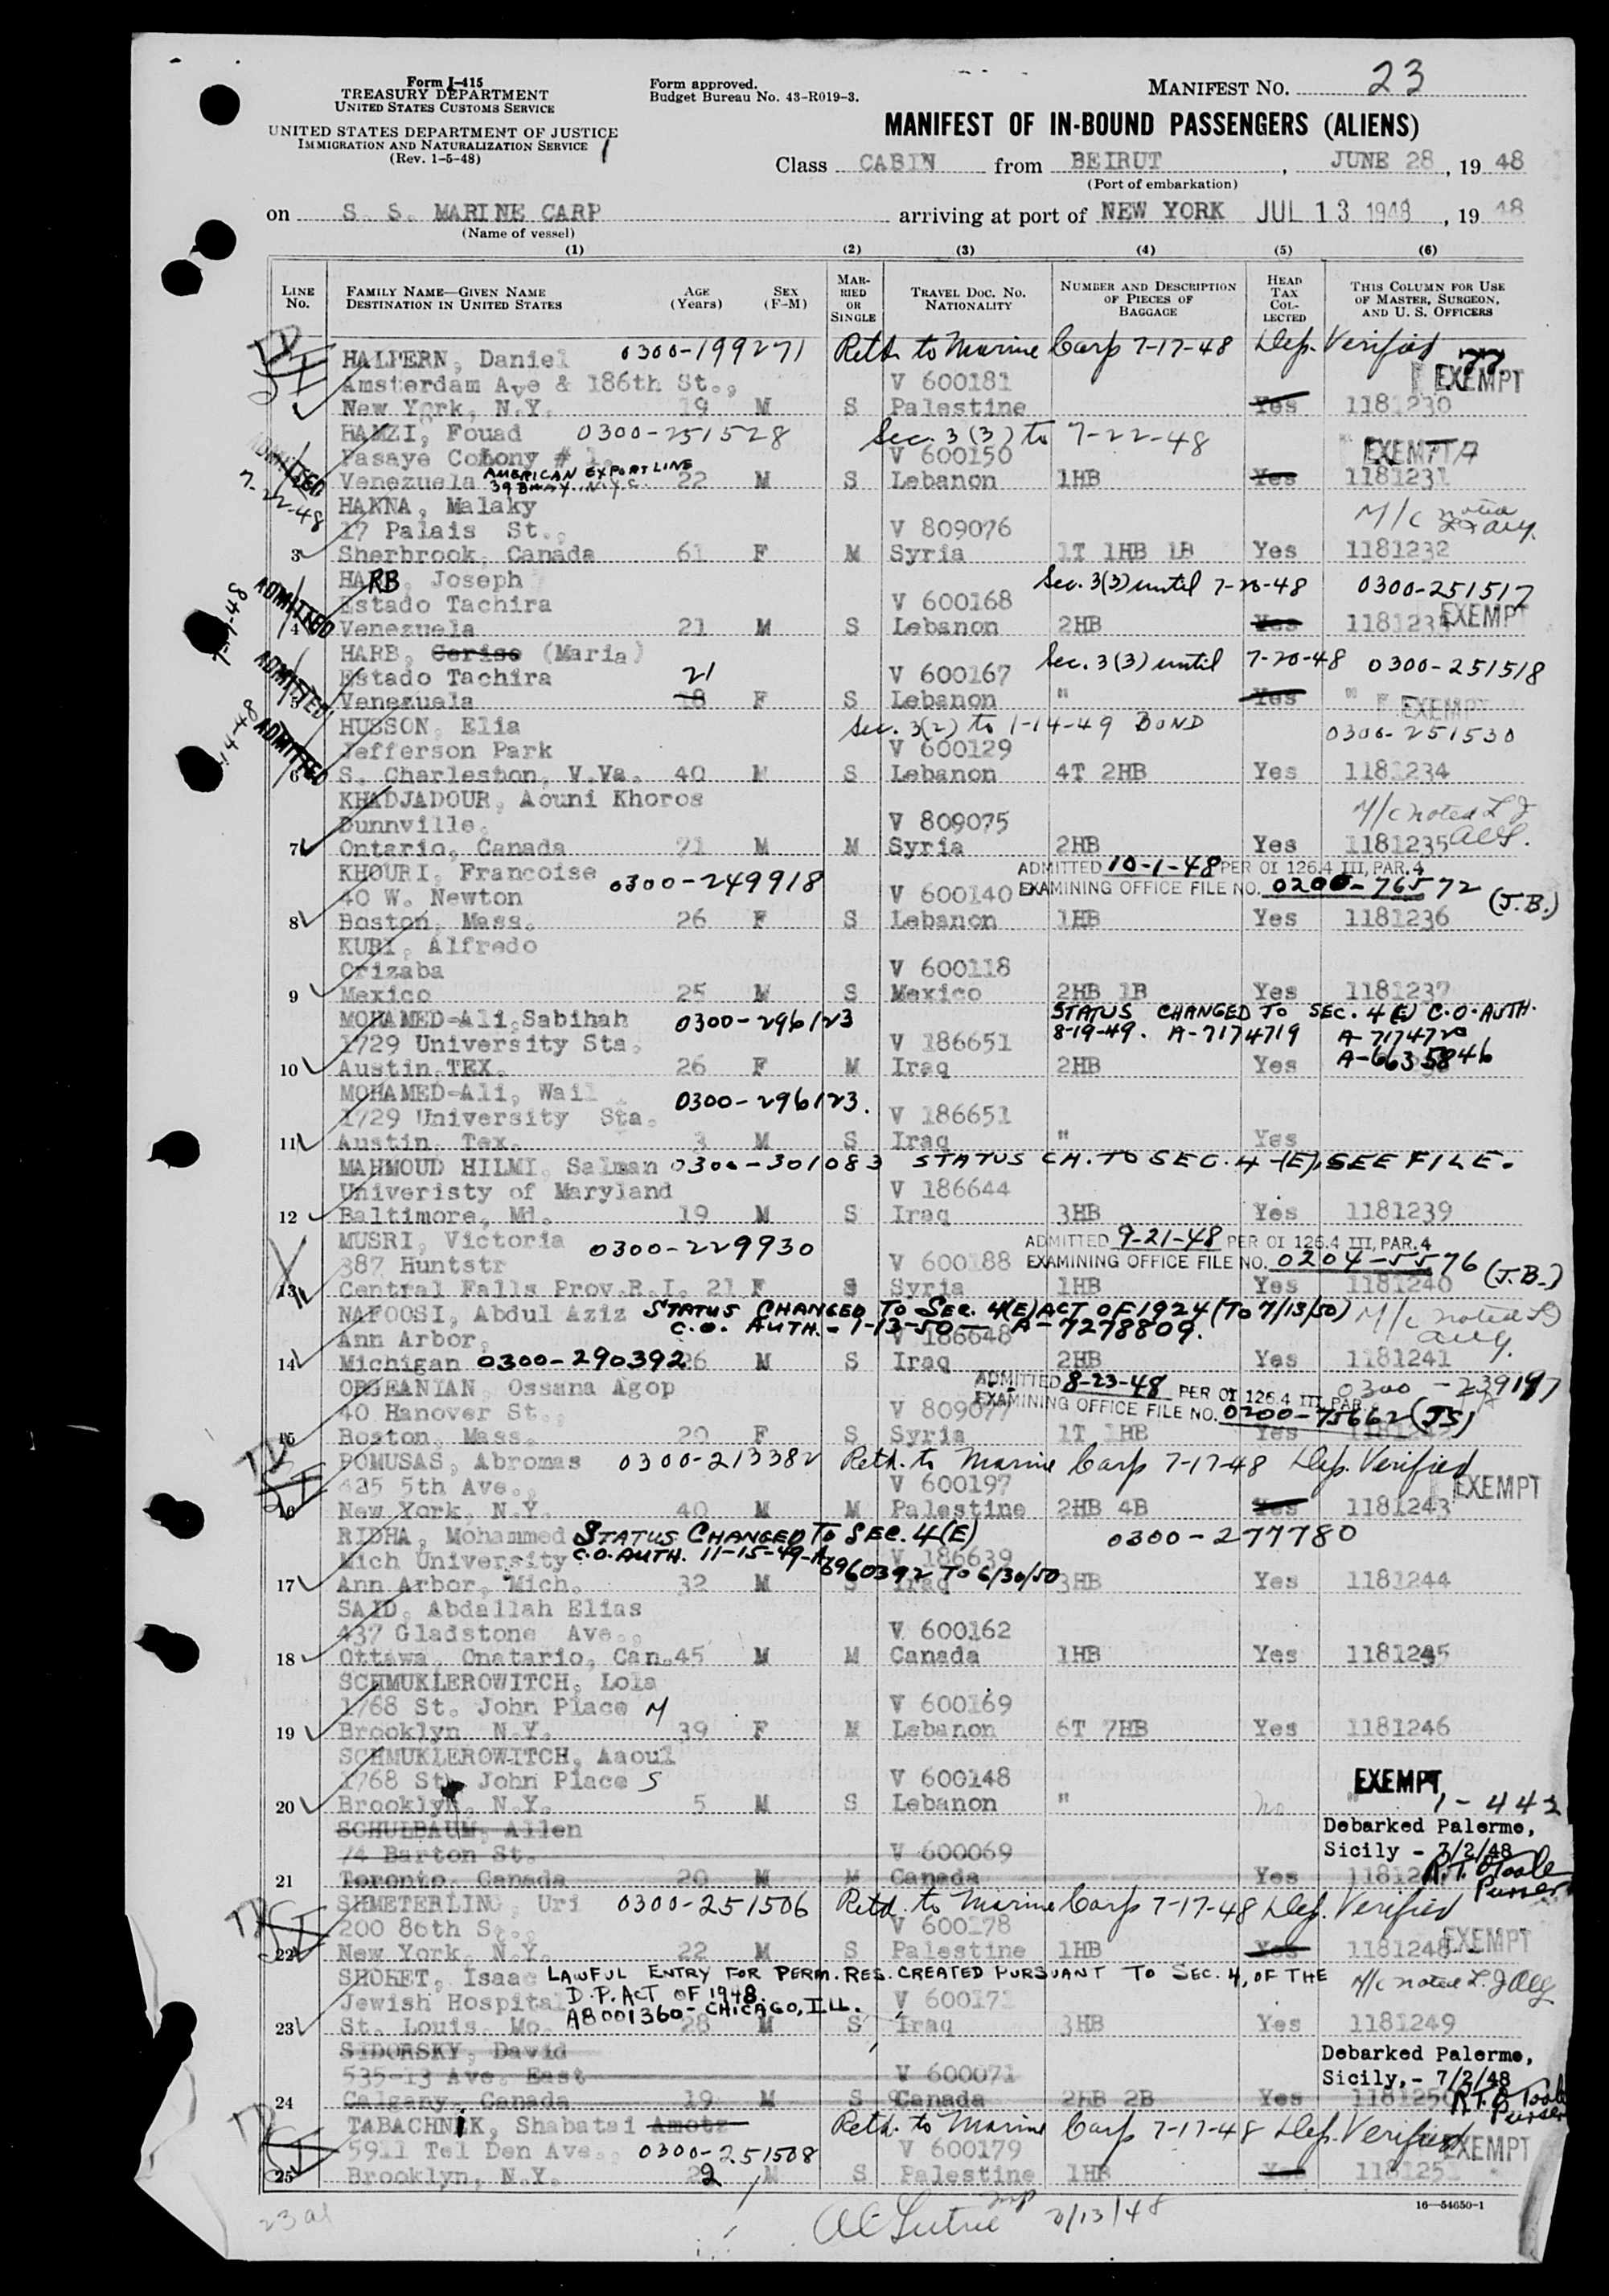 Form I-415
TREASURY DEPARTMENT
UNITED STATES CUSTOMS SERVICE
UNITED STATES DEPARTMENT OF JUSTICE
IMMIGRATION AND NATURALIZATION SERVICE
(Rev. 1-5-48)
Form approved.
Budget Bureau No. 43-R019-3.
MANIFEST NO. 23
MANIFEST OF IN-BOUND PASSENGERS (ALIENS)
Class CABIN from BEIRUT, JUNE 28, 19 48
(Port of embarkation)
on S. S. MARINE CARP arriving at port of NEW YORK JUL 13 1948, 19 48
(Name of vessel)
(1) (2) (3) (4) (5) (6)
LINE No. FAMILY NAME—GIVEN NAME DESTINATION IN UNITED STATES AGE (Years) SEX (F-M) MARRIED OR SINGLE TRAVEL DOC. NO. NATIONALITY NUMBER AND DESCRIPTION OF PIECES OF BAGGAGE HEAD TAX COLLECTED THIS COLUMN FOR USE OF MASTER, SURGEON, AND U. S. OFFICERS
HALPERN, Daniel 0300-199271 Retd. to Marine Carp 7-17-48 Dep. Verified
Amsterdam Ave & 186th St., V 600181 EXEMPT
New York, N.Y. 19 M S Palestine Yes 1181230
HAMZI, Fouad 0300-251528 Sec. 3(3) to 7-22-48
Pasaye Colony # 1. V 600150 EXEMPT
AMERICAN EXPORT LINE
ADMITTED 7-22-48 Venezuela 39 BWAY. N.Y.C. 22 M S Lebanon 1HB Yes 1181231
HANNA, Malaky M/c noted
17 Palais St., V 809076
3 Sherbrook, Canada 61 F M Syria 1T 1HB 1B Yes 1181232
HARB, Joseph Sec. 3(3) until 7-20-48 0300-251517
Estado Tachira V 600168 EXEMPT
ADMITTED 4 Venezuela 21 M S Lebanon 2HB Yes 118123
HARB, Cerise (Maria) Sec. 3(3) until 7-20-48 0300-251518
Estado Tachira 21 V 600167
ADMITTED 5 Venezuela 18 F S Lebanon " Yes " EXEMPT
HUSSON, Elia Sec. 3(2) to 1-14-49 BOND 0300-251530
Jefferson Park V 600129
ADMITTED 6 S. Charleston, W.Va. 40 M S Lebanon 4T 2HB Yes 1181234
KHADJADOUR, Aouni Khoros M/c noted
Dunnville, V 809075
7 Ontario, Canada 71 M M Syria 2HB Yes 1181235
ADMITTED 10-1-48 PER OI 126.4 III, PAR. 4
KHOURI, Francoise 0300-249918
EXAMINING OFFICE FILE NO. 0200-76572 (J.B.)
40 W. Newton V 600140
8 Boston, Mass. 26 F S Lebanon 1HB Yes 1181236
KURI, Alfredo
Orizaba V 600118
9 Mexico 25 M S Mexico 2HB 1B Yes 1181237
MOHAMED-Ali, Sabihah 0300-296123 STATUS CHANGED TO SEC. 4(E) C.O. AUTH.
8-19-49. A-7174719 A-7174720
1729 University Sta. V 186651
10 Austin, TEX. 26 F M Iraq 2HB Yes A-6635846
MOHAMED-Ali, Wail 0300-296123.
1729 University Sta. V 186651
11 Austin, Tex. 3 M S Iraq " Yes
MAHMOUD HILMI, Salman 0300-301083 STATUS CH. TO SEC. 4-(E), SEE FILE.
Univeristy of Maryland V 186644
12 Baltimore, Md. 19 M S Iraq 3HB Yes 1181239
ADMITTED 9-21-48 PER OI 126.4 III, PAR. 4
MUSRI, Victoria 0300-229930
EXAMINING OFFICE FILE NO. 0204-5576 (J.B.)
387 Huntstr V 600188
13 Central Falls Prov.R.I. 21 F S Syria 1HB Yes 1181240
NAFOOSI, Abdul Aziz STATUS CHANGED TO SEC. 4(E) ACT OF 1924 (TO 7/13/50) M/c noted
C.O. AUTH. - 1-13-50 — A-7278809.
Ann Arbor, V 186648
14 Michigan 0300-290392 26 M S Iraq 2HB Yes 1181241
ADMITTED 8-23-48 PER OI 126.4 III, PAR.
OBJEANIAN, Ossana Agop 0300-239197
EXAMINING OFFICE FILE NO. 0200-75662 (JS)
40 Hanover St., V 809077
15 Boston, Mass. 20 F S Syria 1T 1HB Yes
POMUSAS, Abromas 0300-213382 Retd. to Marine Carp 7-17-48 Dep. Verified
425 5th Ave., V 600197 EXEMPT
16 New York, N.Y. 40 M M Palestine 2HB 4B Yes 1181243
RIDHA, Mohammed STATUS CHANGED TO SEC. 4(E) 0300-277780
Mich University C.O. AUTH. 11-15-49-A V 186639
6960392 TO 6/30/50
17 Ann Arbor, Mich. 32 M S Iraq 3HB Yes 1181244
SAID, Abdallah Elias
437 Gladstone Ave., V 600162
18 Ottawa, Onatario, Can. 45 M M Canada 1HB Yes 1181245
SCHMUKLEROWITCH, Lola
1768 St. John Place M V 600169
19 Brooklyn, N.Y. 39 F M Lebanon 6T 7HB Yes 1181246
SCHMUKLEROWITCH, Aaoul
1768 St. John Place S V 600148 EXEMPT
20 Brooklyn, N.Y. 5 M S Lebanon " no " 1-442
SCHULBAUM, Allen Debarked Palermo,
74 Barton St. V 600069 Sicily - 7/2/48
21 Toronto, Canada 20 M M Canada Yes R.T. O'Toole Purser
SHMETERLING, Uri 0300-251506 Retd. to Marine Carp 7-17-48 Dep. Verified
200 86th St., V 600178 EXEMPT
22 New York, N.Y. 22 M S Palestine 1HB Yes 1181248
SHOHET, Isaac LAWFUL ENTRY FOR PERM. RES. CREATED PURSUANT TO SEC. 4, OF THE M/c noted
D.P. ACT OF 1948.
Jewish Hospital V 600171
A8001360 - CHICAGO, ILL.
23 St. Louis, Mo. 28 M S Iraq 3HB Yes 1181249
SIDORSKY, David Debarked Palermo,
535-13 Ave. East V 600071 Sicily, - 7/2/48
24 Calgary, Canada 19 M S Canada 2HB 2B Yes 1181250 R.T. O'Toole Purser
TABACHNIK, Shabatai Amotz Retd. to Marine Carp 7-17-48 Dep. Verified
5911 Tel Den Ave., 0300-251508 V 600179 EXEMPT
25 Brooklyn, N.Y. 22 M S Palestine 1HB Yes 118125
7/13/48
16—54650-1